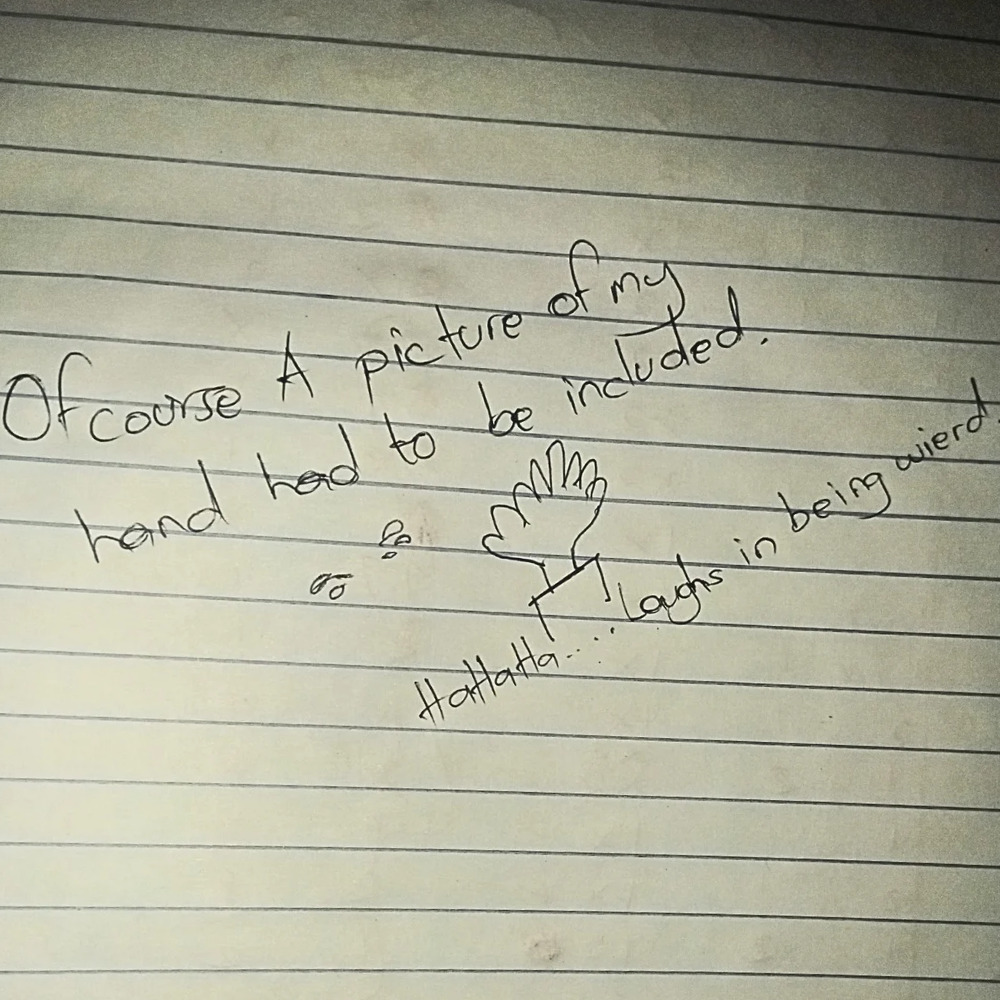 Of course A picture of my
hand had to be included.
HaHaHa..... Laughs in being wierd.